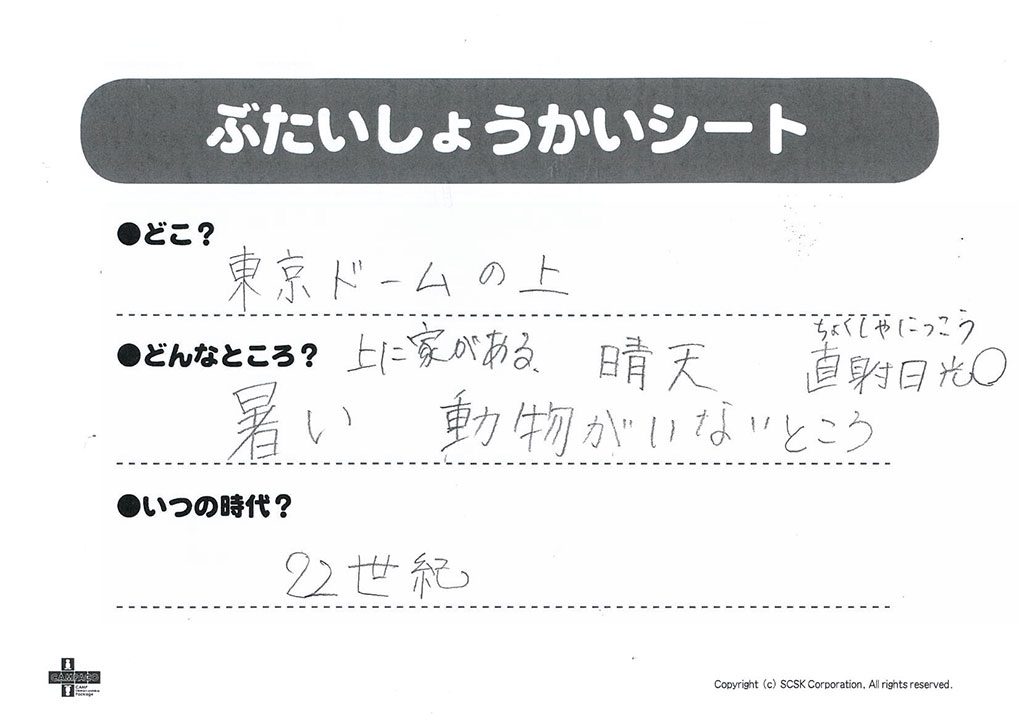 ぶたいしょうかいシート
●どこ?
東京ドームの上
●どんなところ? 上に家がある、 晴天 直射日光○
ちょくしゃにっこう
暑い 動物がいないところ
●いつの時代?
22世紀
CAMPACO
CAMP
Package
Copyright (c) SCSK Corporation, All rights reserved.